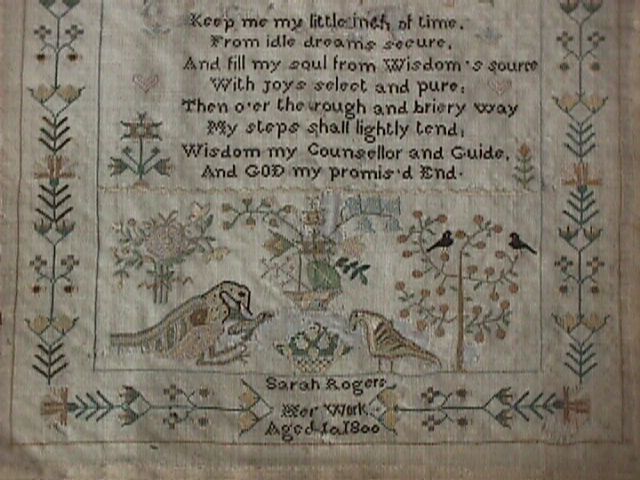 Keep me my little inch of time,
From idle dreams secure,
And fill my soul from Wisdom's source
With joys select and pure;
Then o'er the rough and briery way
My steps shall lightly tend;
Wisdom my Counsellor and Guide,
And GOD my promis'd End.
Sarah Rogers
Her Work
Aged 1800